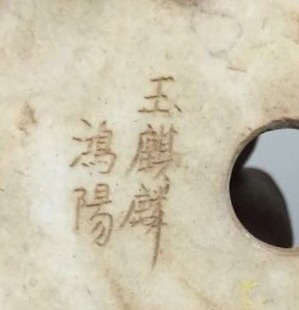 玉麒麟
鴻陽